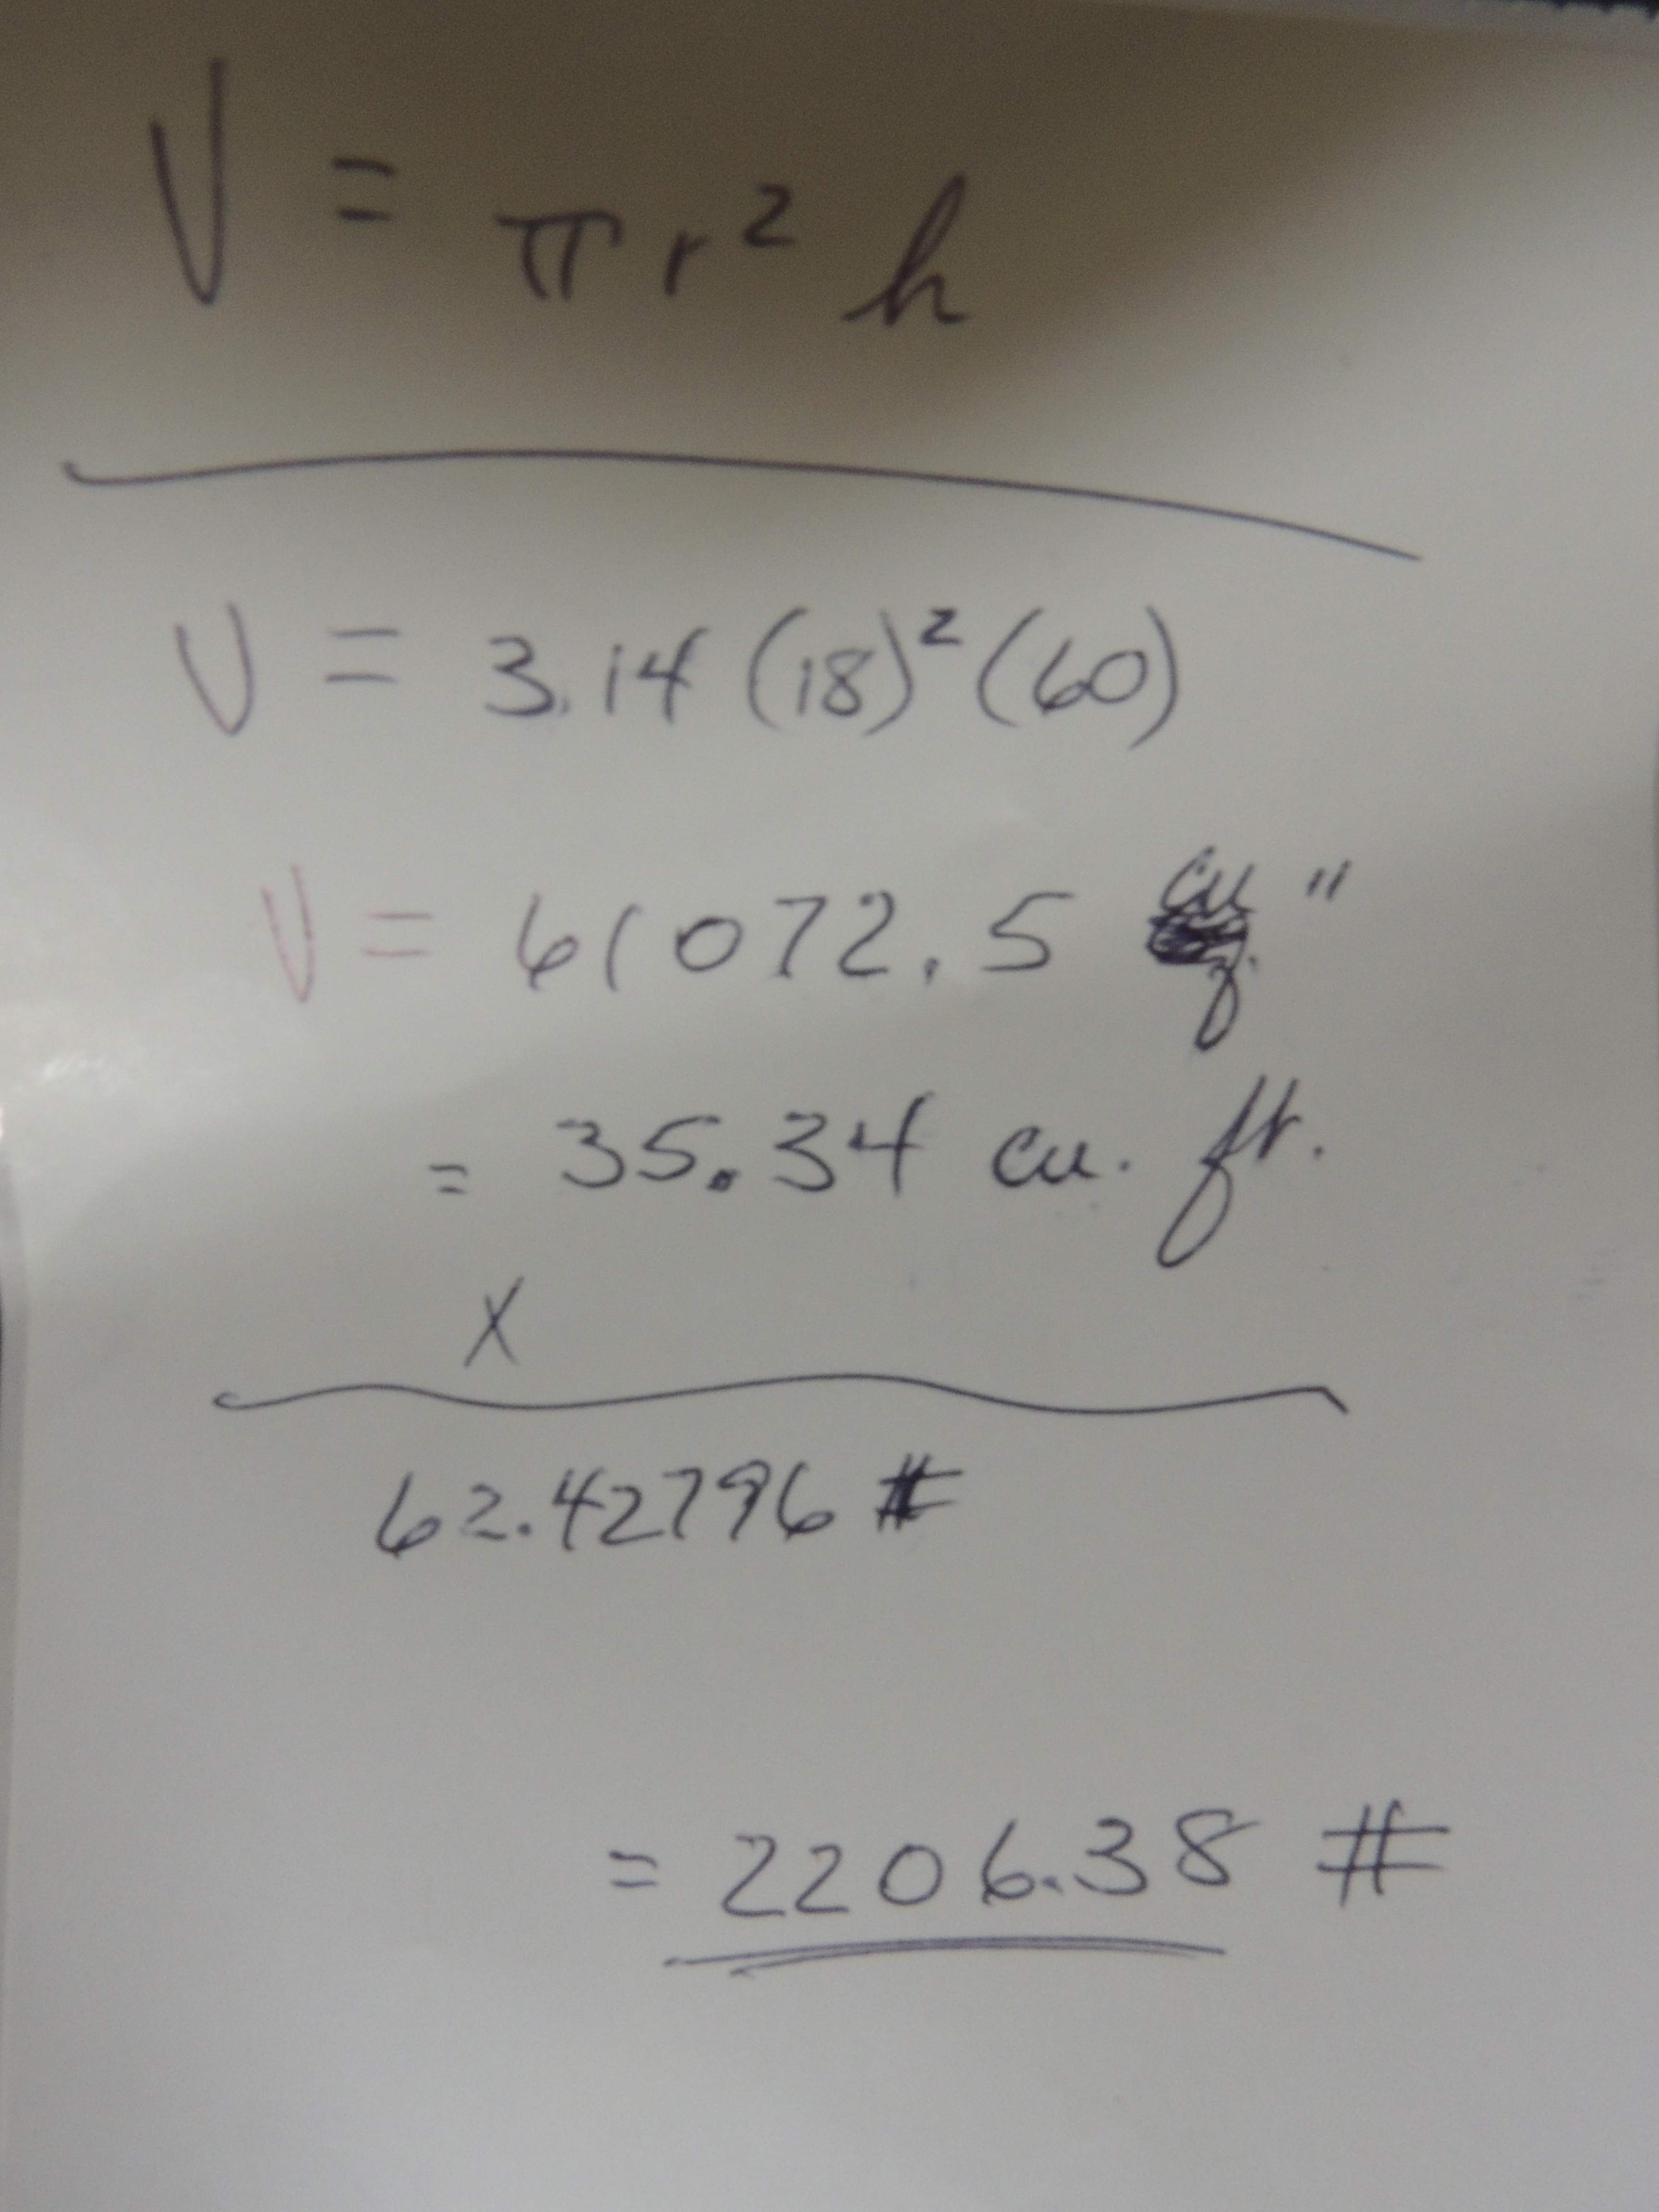 V = πr² h
V = 3.14 (18)² (60)
V = 61072.5 cu "
= 35.34 cu. ft.
X
62.42796 #
= 2206.38 #